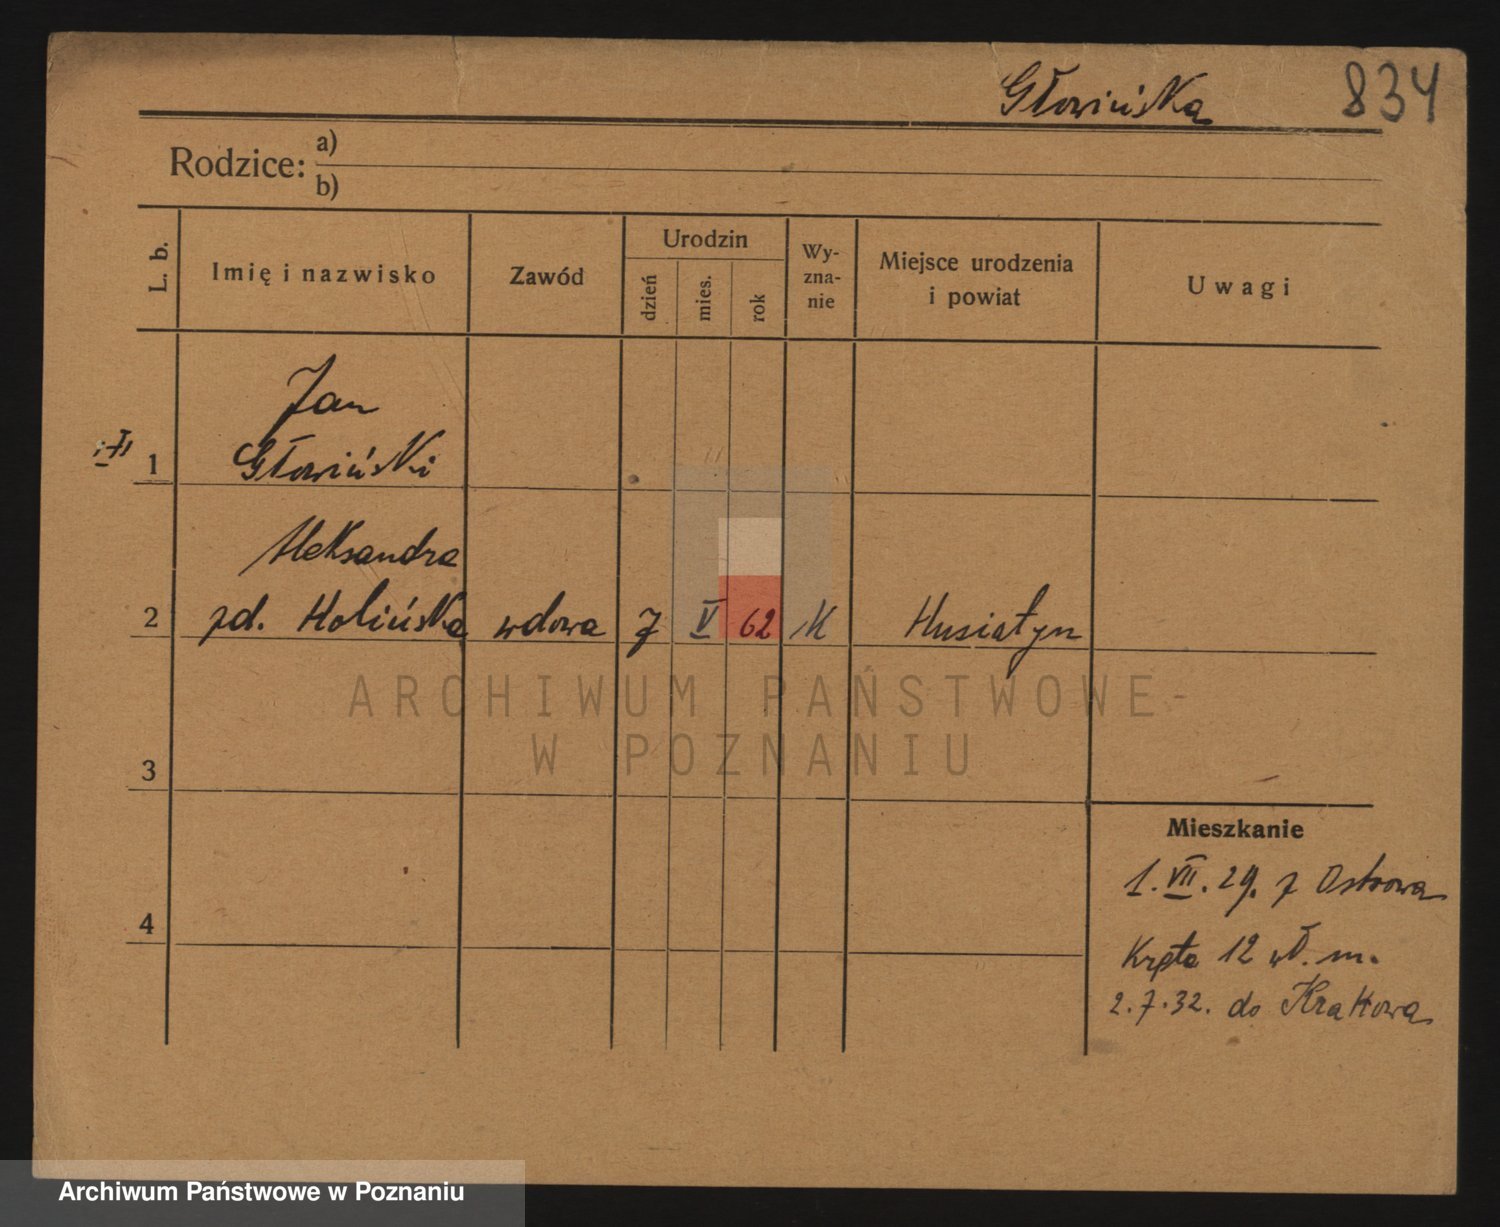 Głowińska 834
Rodzice: a)
b)
L. b. Imię i nazwisko Zawód Urodzin dzień mies. rok Wy-zna-nie Miejsce urodzenia i powiat Uwagi
Jan
1 Głowiński
Aleksandra
2 zd. Holińska wdowa 7 V 62 K Husiatyn
ARCHIWUM PAŃSTWOWE
W POZNANIU
3
Mieszkanie
1. VII. 29. z Ostrowa
4
Kręta 12 wł. m.
2.7.32. do Krakowa
Archiwum Państwowe w Poznaniu